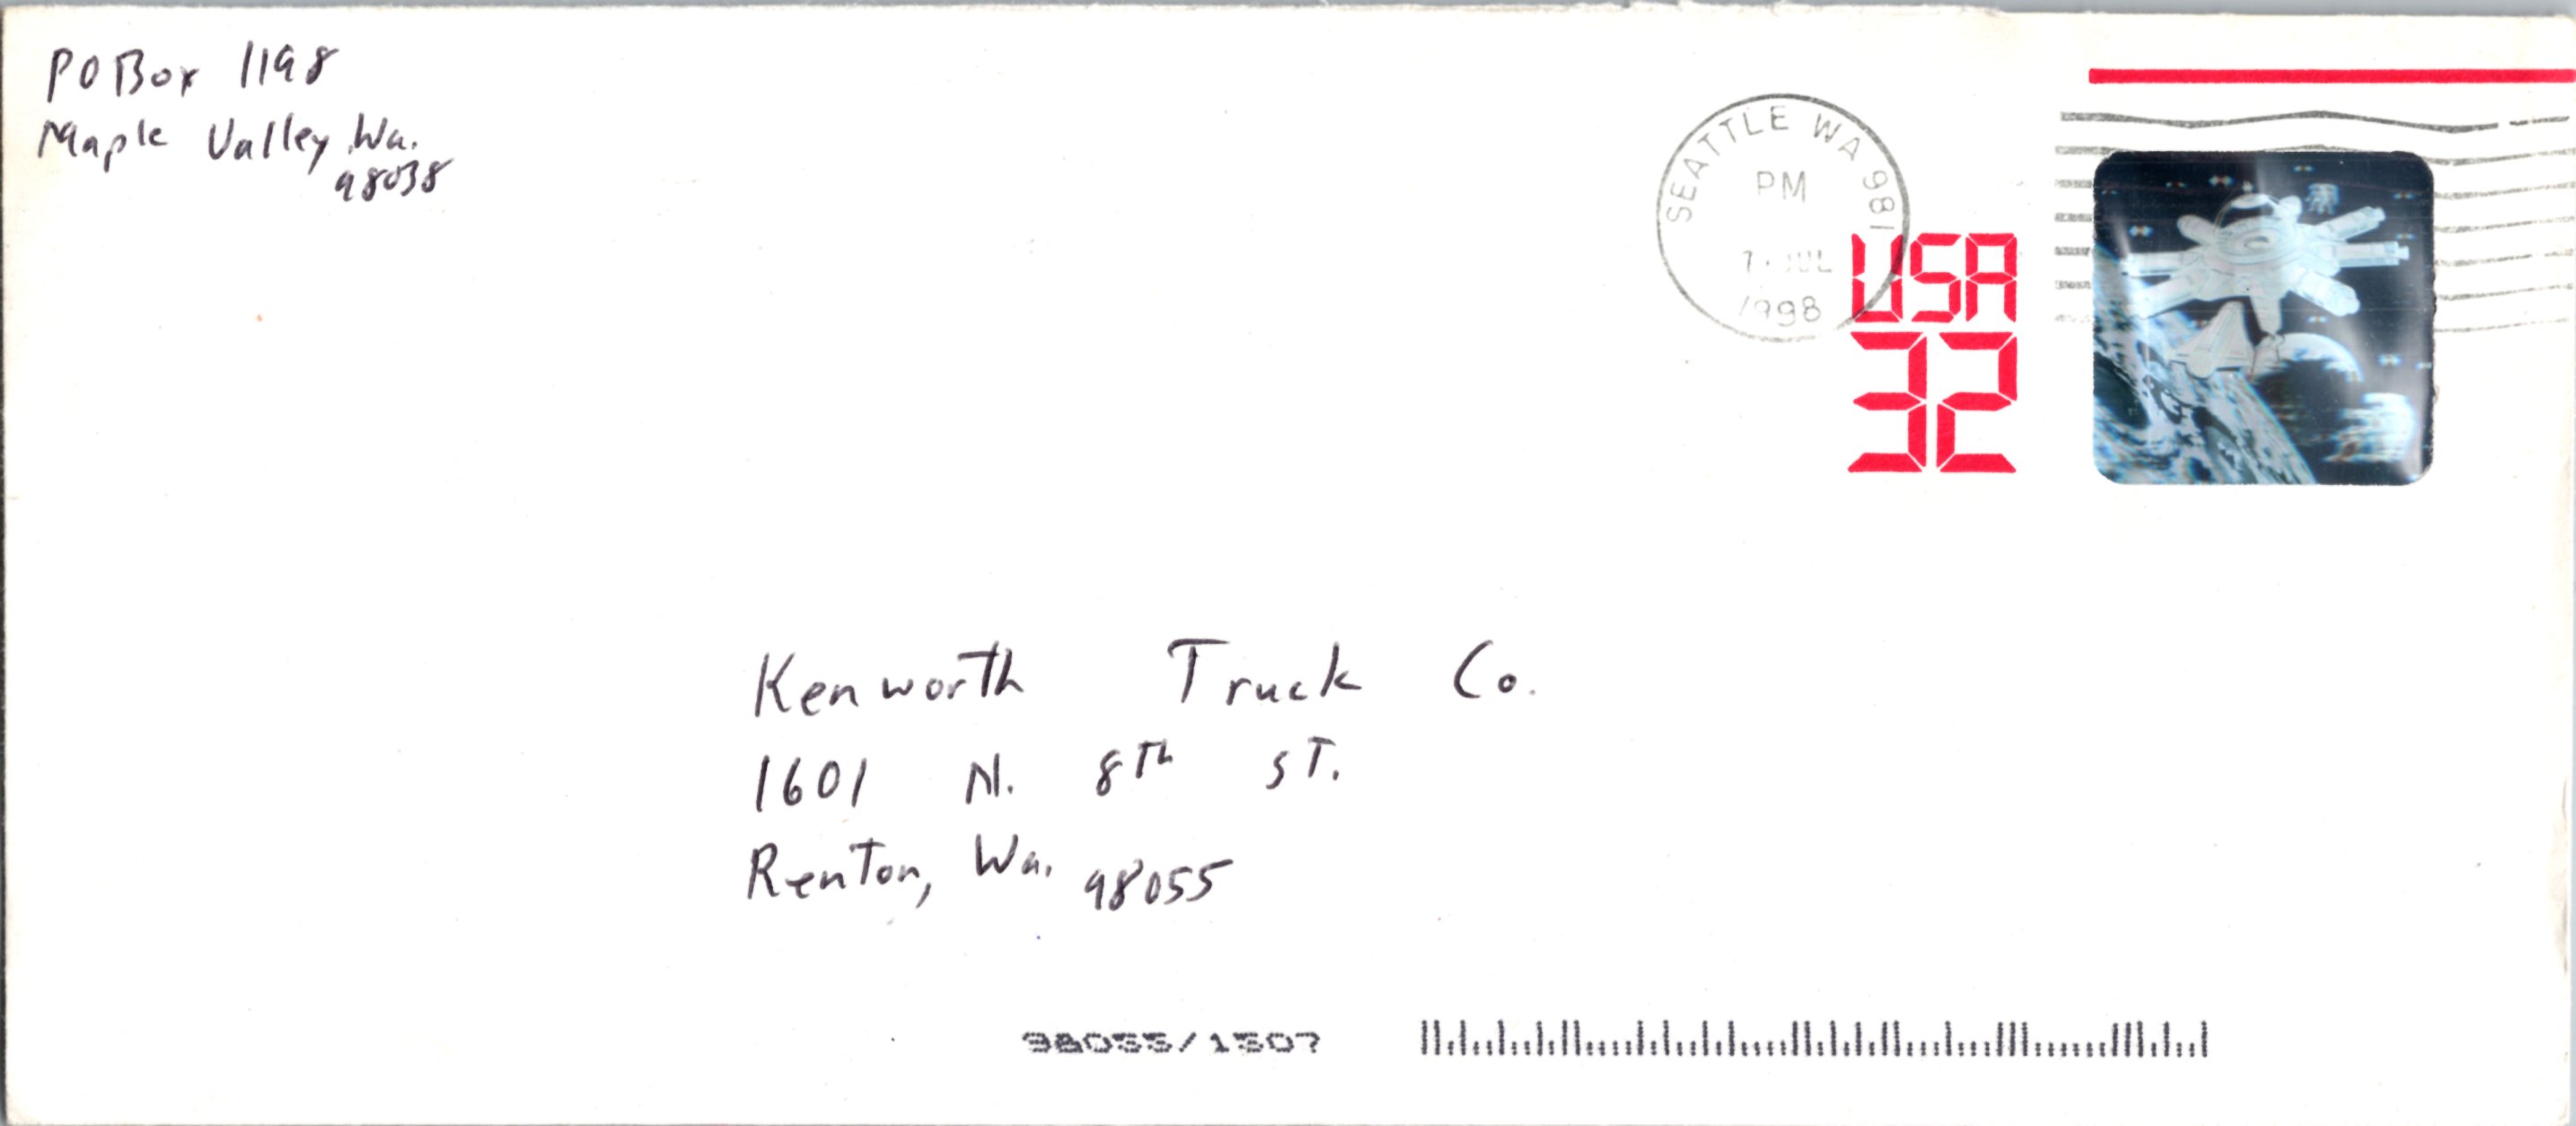 PO Box 1198
Maple Valley Wa.
98038
SEATTLE WA 981
PM
7 JUL
1998
USA
32
Kenworth Truck Co.
1601 N. 8Th ST.
Renton, Wa. 98055
98055/1307